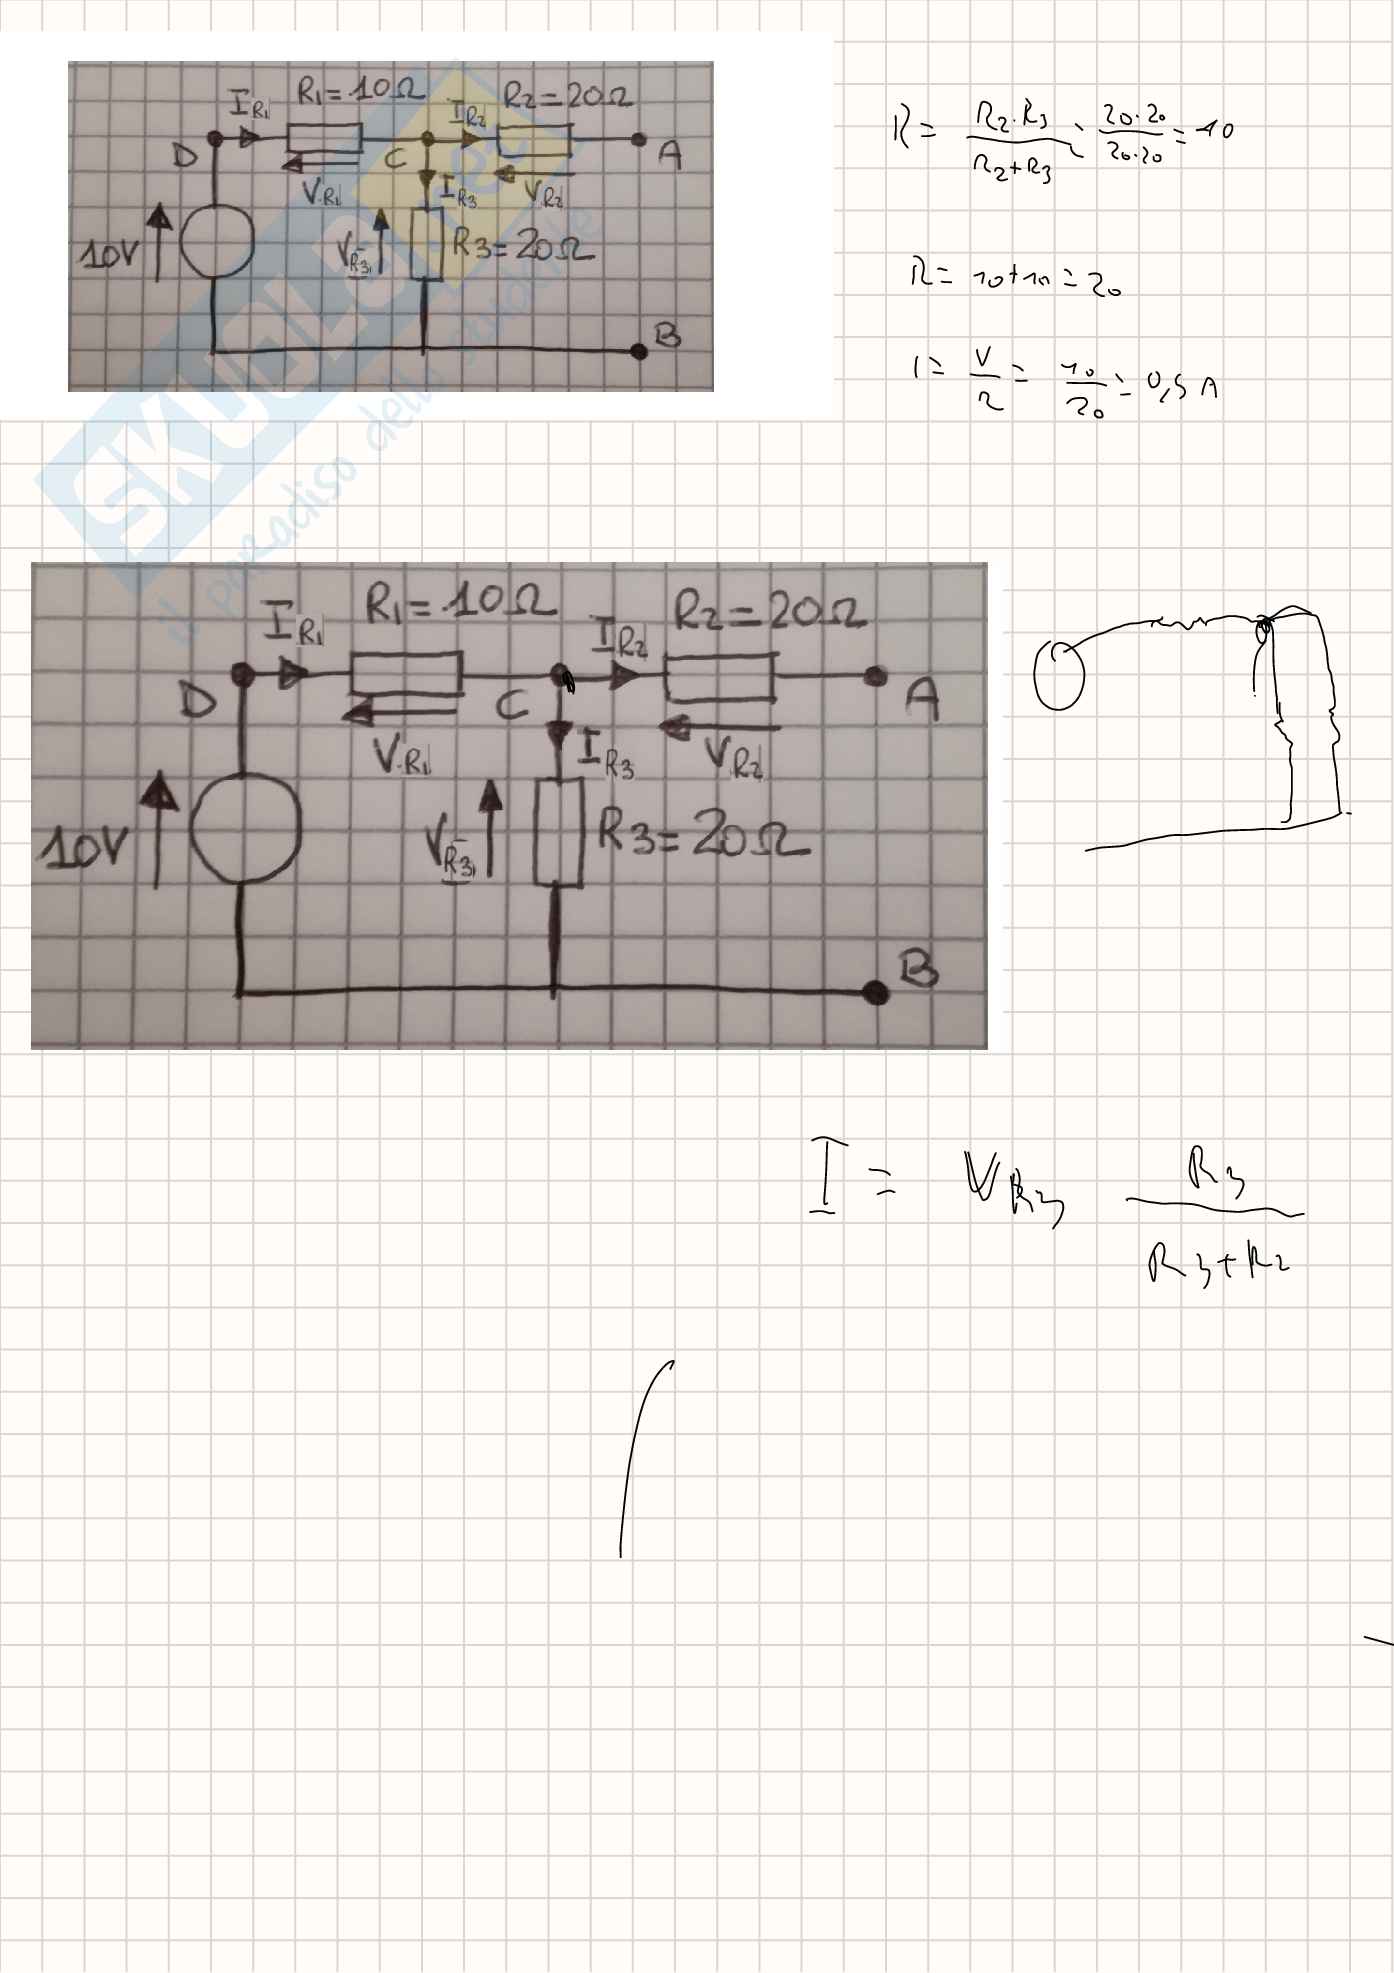 I_R1 R1=10Ω I_R2 R2=20Ω
D C A
V_R1 I_R3 V_R2
10V V_R3 R3=20Ω
B
R = R2·R3 / R2+R3 = 20·20 / 20·20 = 10
R = 10+10 = 20
I = V / R = 10 / 20 = 0,5 A
SKUOLA.net
il paradiso dello studente
I_R1 R1=10Ω I_R2 R2=20Ω
D C A
V_R1 I_R3 V_R2
10V V_R3 R3=20Ω
B
I = V_R3 R3 / R3+R2